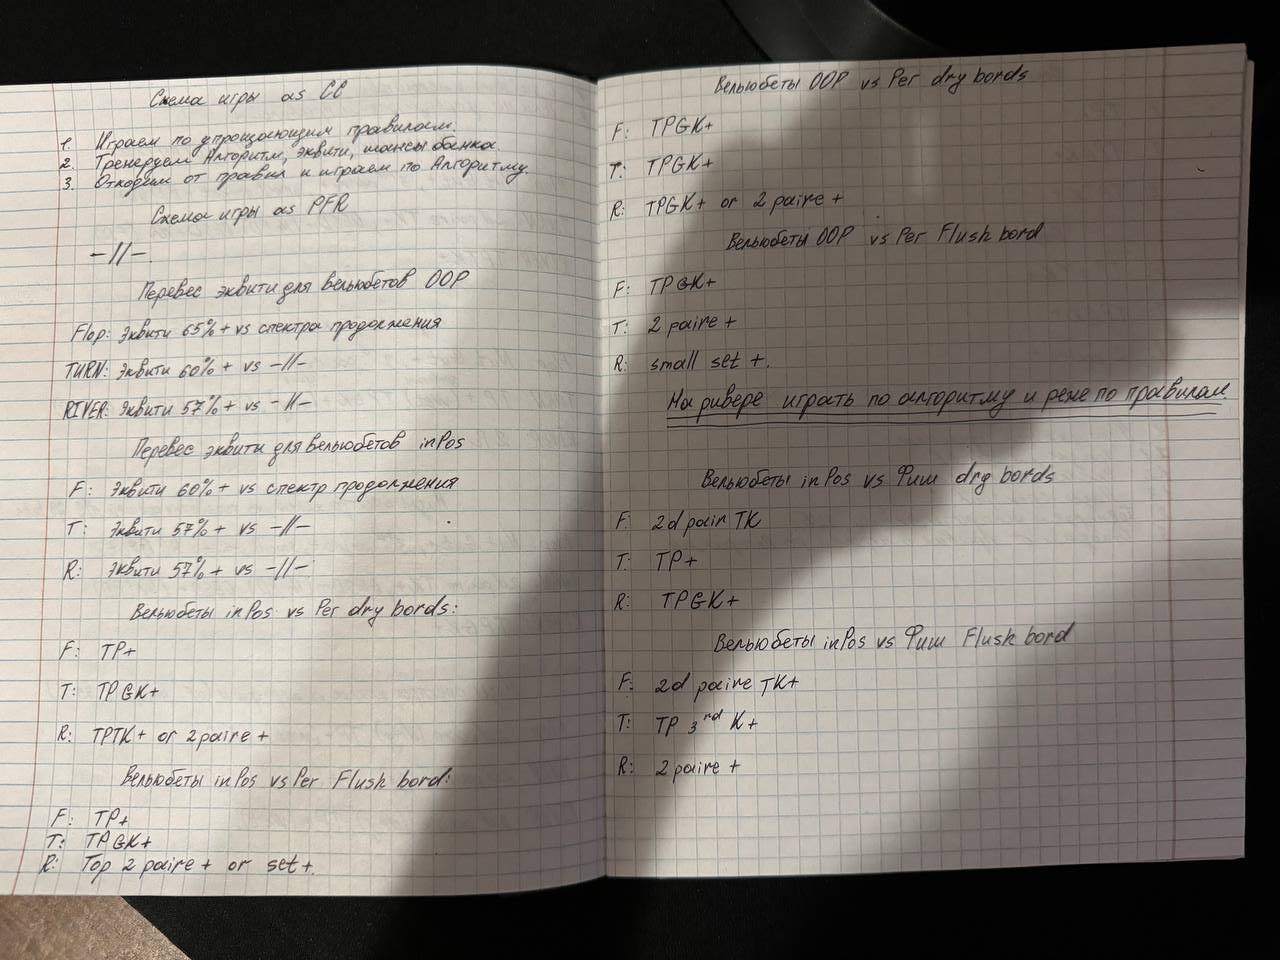 Схема игры as CC
1. Играем по упрощающим правилам.
2. Тренеруем Алгоритм, эквити, шансы банка
3. Отходим от правил и играем по Алгоритму.
Схема игры as PFR
-//-.
Перевес эквити для вельюбетов OOP
Flop: Эквити 65%+ vs спектра продолжения
TURN: Эквити 60%+ vs -//-
RIVER: Эквити 57%+ vs -//-
Перевес эквити для вельюбетов inPos
F: Эквити 60%+ vs спектр продолжения
T: Эквити 57%+ vs -//-
R: Эквити 57%+ vs -//-
Вельюбеты inPos vs Рег dry bords:
F: TP+
T: TPGK+
R: TPTK+ or 2 paire +
Вельюбеты inPos vs Рег Flush bord:
F: TP+
T: TPGK+
R: Top 2 paire + or set +.
Вельюбеты OOP vs Рег dry bords
F: TPGK+
T: TPGK+
R: TPGK+ or 2 paire +
Вельюбеты OOP vs Рег Flush bord
F: TPGK+
T: 2 paire +
R: small set +.
На ривере играть по алгоритму и реже по правилам
Вельюбеты inPos vs Фиш dry bords
F: 2d pair TK
T: TP+
R: TPGK+
Вельюбеты inPos vs Фиш Flush bord
F: 2d paire TK+
T: TP 3rd K+
R: 2 paire +